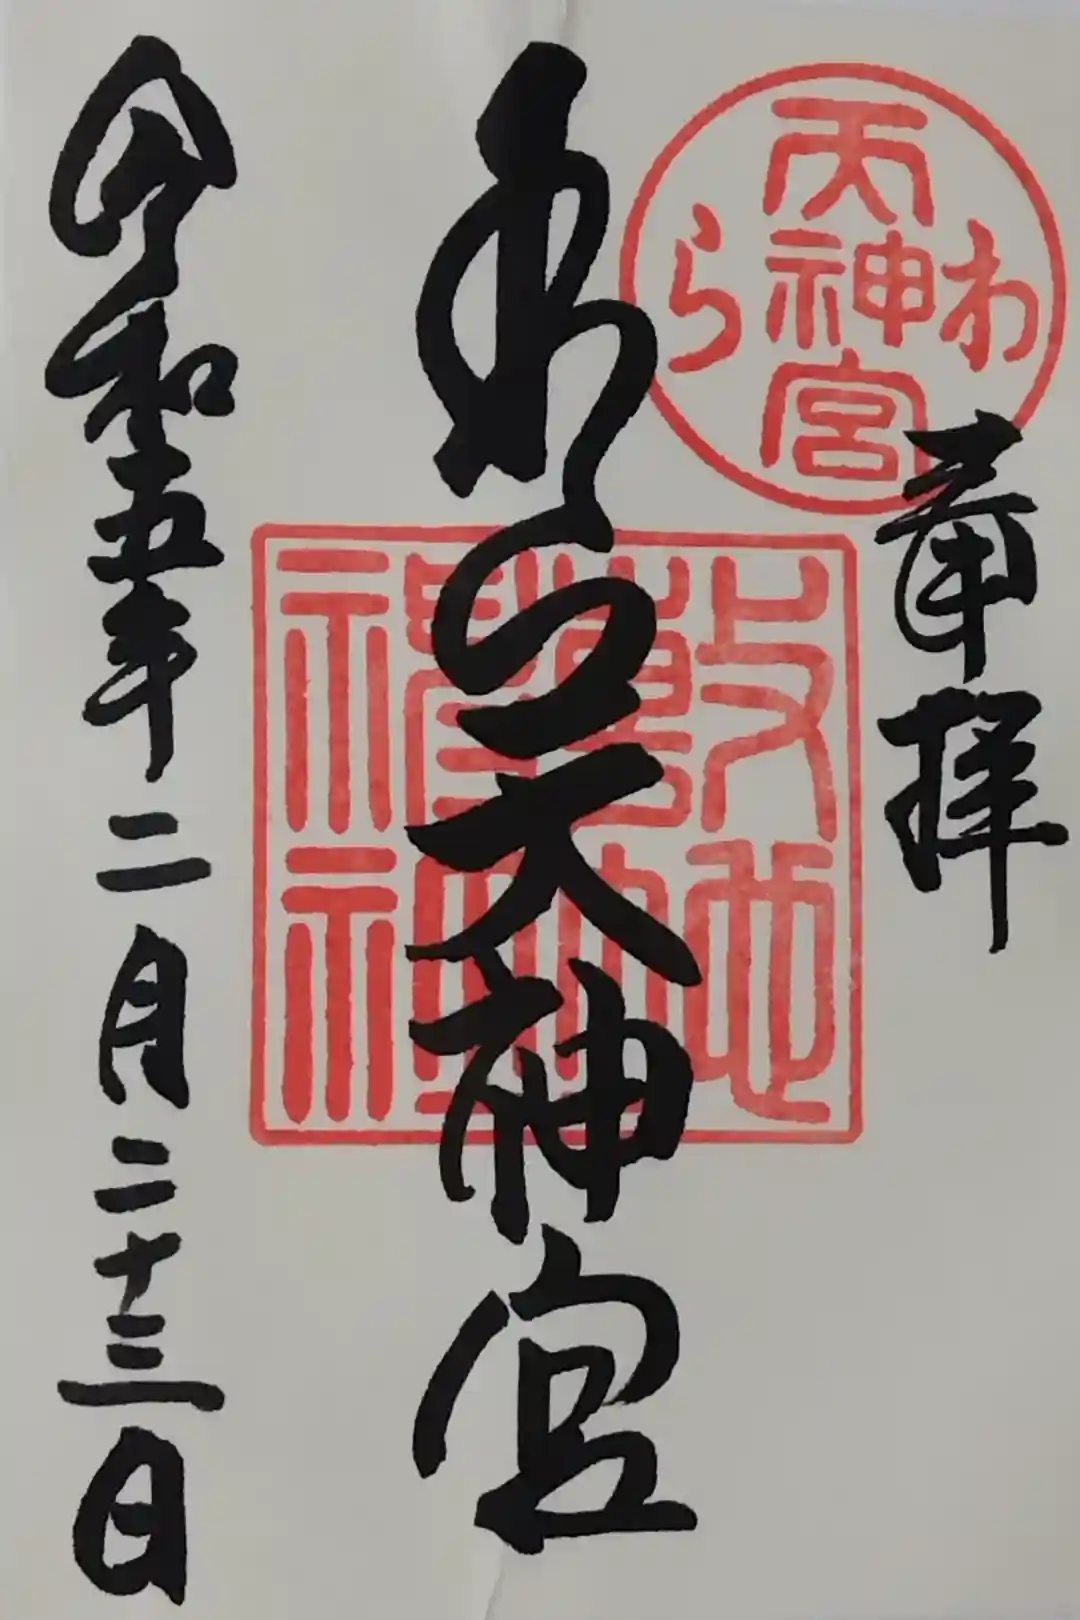 奉拝
わら
天神宮
わら天神宮
敷地
神社
令和五年二月二十三日